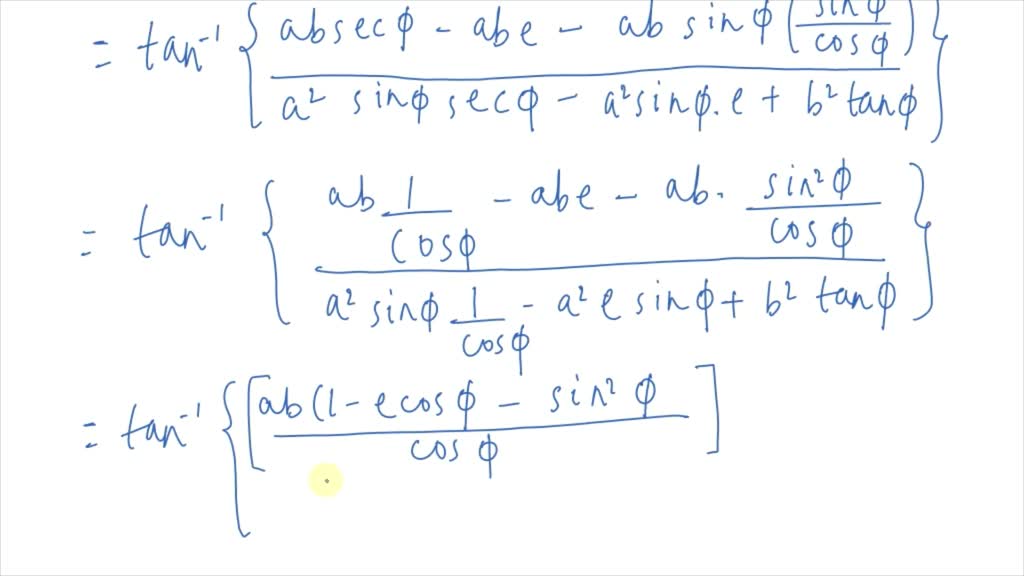 = tan⁻¹ { (ab secϕ - abe - ab sinϕ (sinϕ/cosϕ)) / (a² sinϕ secϕ - a² sinϕ.e + b² tanϕ) }
= tan⁻¹ { (ab 1/cosϕ - abe - ab. sin²ϕ/cosϕ) / (a² sinϕ 1/cosϕ - a² e sinϕ + b² tanϕ) }
= tan⁻¹ { [ ab(1 - e cosϕ - sin²ϕ / cosϕ ]